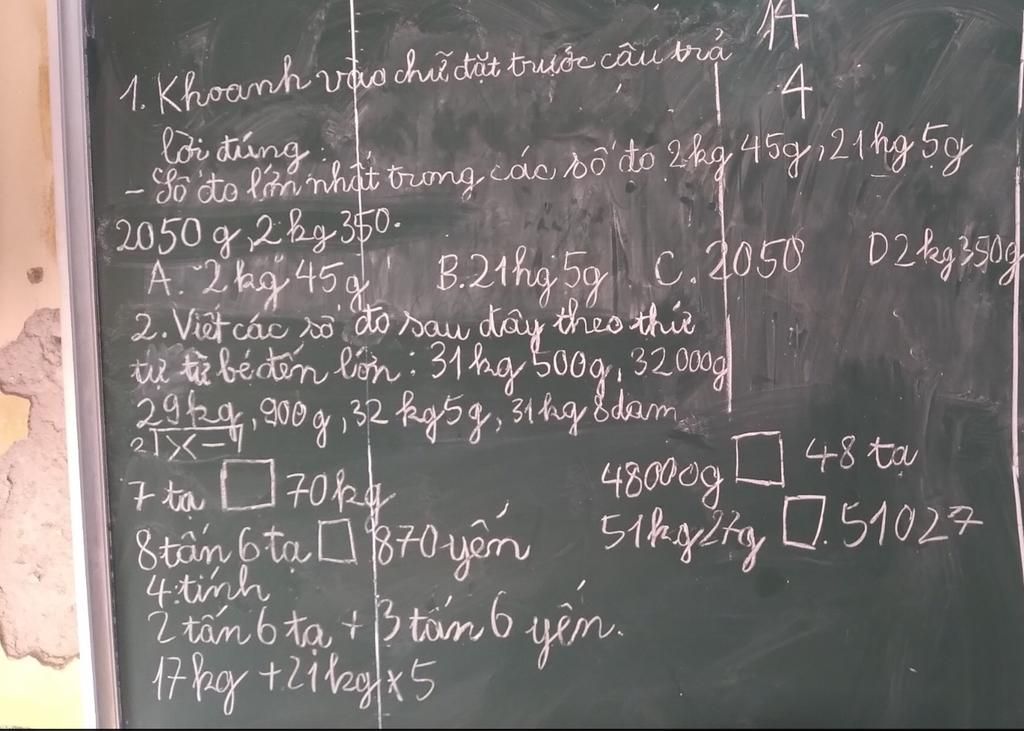 14
4
1. Khoanh vào chữ đặt trước câu trả
lời đúng:
- Số đo lớn nhất trong các số đo 2kg 45g, 21hg 5g
2050 g, 2 kg 350.
A. 2kg 45g B. 21hg 5g C. 2050 D 2kg 350g
2. Viết các số đo sau đây theo thứ
tự từ bé đến lớn: 31kg 500g, 32000g
29kg, 900g, 32 kg 5g, 31kg 8dam
7 tạ □ 70kg 48000g □ 48 tạ
8 tấn 6 tạ □ 870 yến 51kg 27g □. 51027
4. tính
2 tấn 6 tạ + 3 tấn 6 yến.
17kg + 21kg x 5